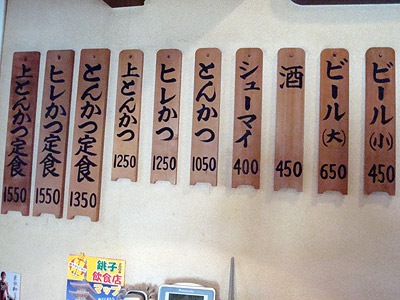 上とんかつ定食
1550
ヒレかつ定食
1550
とんかつ定食
1350
上とんかつ
1250
ヒレかつ
1250
とんかつ
1050
シューマイ
400
酒
450
ビール(大)
650
ビール(小)
450
銚子
飲食店
マップ